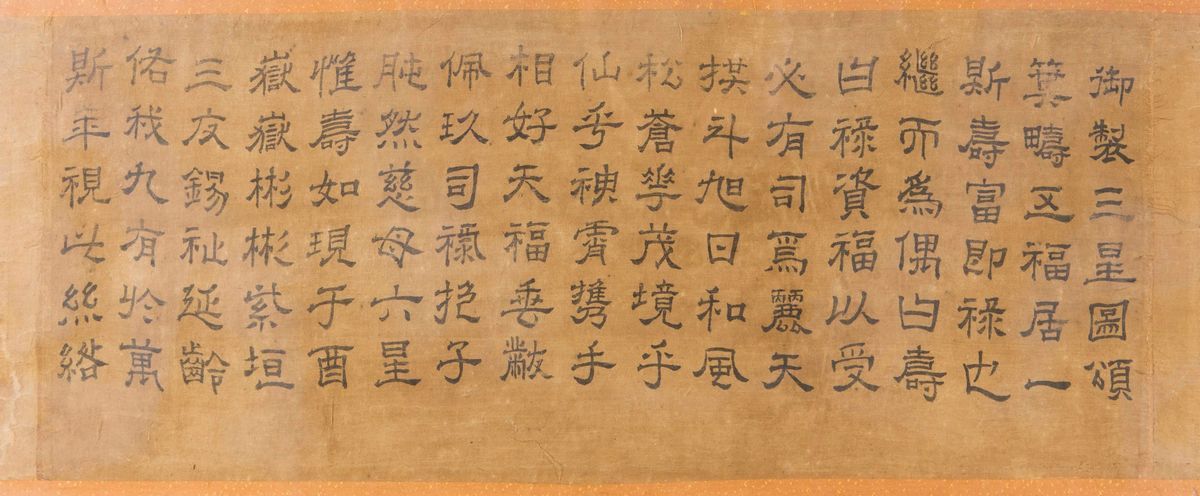 御製三星圖頌
箕疇五福居一
斯壽富即祿也
繼而爲偶曰壽
曰祿資福以受
必有司焉麗天
拱斗旭日和風
松蒼華茂境乎
仙乎神霄攜手
相好天福垂黻
佩玖司祿抱子
肫然慈母六星
惟壽如現于酉
嶽嶽彬彬紫垣
三友錫祉延齡
佑我九有於萬
斯年視此絲綹